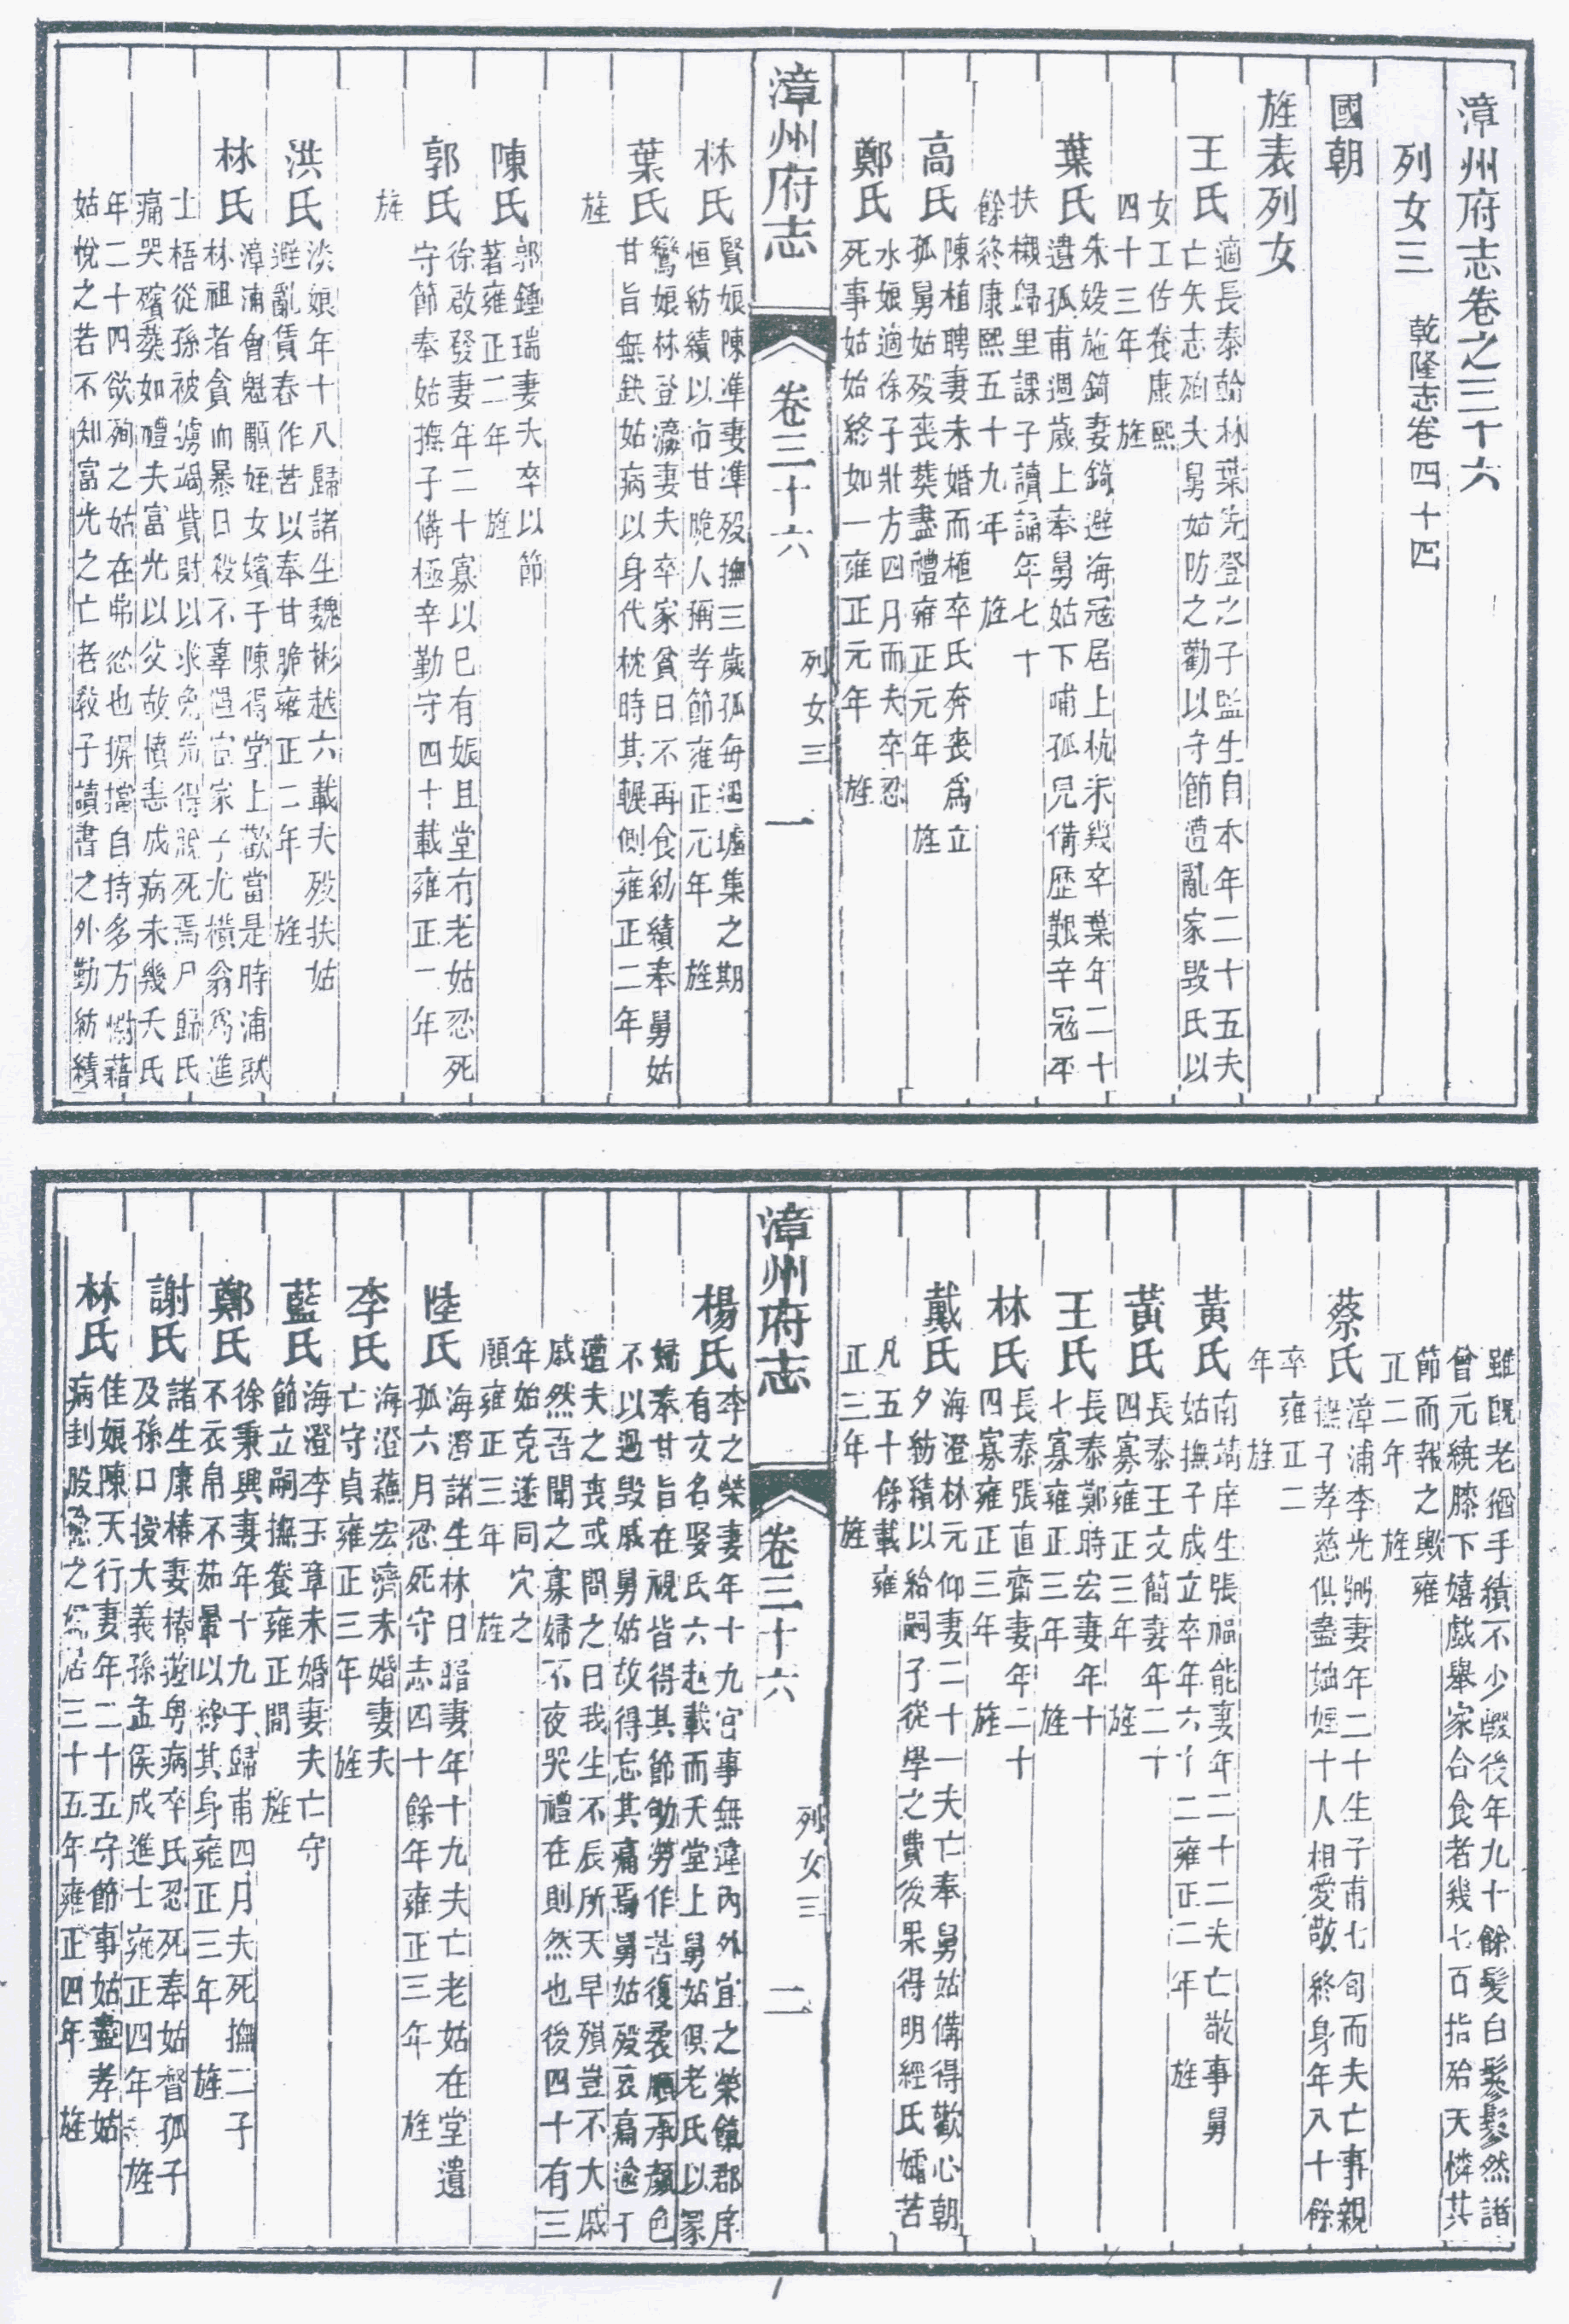 漳州府志卷之三十六
列女三 乾隆志卷四十四
國朝
旌表列女
王氏 適長泰翰林葉先登之子監生自本年二十五夫
亡矢志殉夫舅姑防之勸以守節遭亂家毀氏以
女工佐養康熙
四十三年 旌
葉氏 朱娘施錡妻錡避海寇居上杭未幾卒葉年二十
遺孤甫週歲上奉舅姑下哺孤兒備歷艱辛寇平
扶櫬歸里課子讀誦年七十
餘終康熙五十九年 旌
高氏 陳植聘妻未婚而植卒氏奔喪爲立
孤舅姑歿喪葬盡禮雍正元年 旌
鄭氏 水娘適徐子壯方四月而夫卒忍
死事姑始終如一雍正元年 旌
漳州府志 卷三十六 列女三 一
林氏 賢娘陳準妻準歿撫三歲孤每遇墟集之期
恒紡績以市甘脆人稱孝節雍正元年 旌
葉氏 鸞娘林登瀛妻夫卒家貧日不再食紡績奉舅姑
甘旨無缺姑病以身代枕時其輾側雍正二年
旌
陳氏 郭鍾瑞妻夫卒以節
著雍正二年 旌
郭氏 徐啟發妻年二十寡以巳有娠且堂有老姑忍死
守節奉姑撫子備極辛勤守四十載雍正一年
旌
洪氏 淡娘年十八歸諸生魏彬越六載夫歿扶姑
避亂賃舂作苦以奉甘脆雍正二年 旌
林氏 漳浦會魁顒姪女嬪于陳得堂上歡當是時浦賊
林祖者貪而暴日殺不辜過富家子尤橫翁爲進
士梧從孫被擄竭貲財以求免弟得脫死焉尸歸氏
痛哭殯葬如禮夫富光以父故憤恚成病未幾夭氏
年二十四欲殉之姑在弗忍也摒擋自持多方慰藉
姑悅之若不知富光之亡者敎子讀書之外勤紡績
雖旣老猶手績不少輟後年九十餘髮白鬖鬖然諧
曾元繞膝下嬉戲舉家合食者幾七百指殆天憐其
節而報之歟雍
正二年 旌
蔡氏 漳浦李光弼妻年二十生子甫七旬而夫亡事親
撫子孝慈俱盡妯娌十人相愛敬終身年八十餘
卒雍正二
年 旌
黃氏 南靖庠生張福能妻年二十二夫亡敬事舅
姑撫子成立卒年六十二雍正二年 旌
黃氏 長泰王文簡妻年二十
四寡雍正三年 旌
王氏 長泰鄭時宏妻年十
七寡雍正三年 旌
林氏 長泰張直齋妻年二十
四寡雍正三年 旌
戴氏 海澄林元仰妻二十一夫亡奉舅姑備得歡心朝
夕紡績以給嗣子從學之費後果得明經氏孀苦
凡五十餘載雍
正三年 旌
漳州府志 卷三十六 列女三 二
楊氏 李之榮妻年十九宮事無違內外宜之榮餼郡庠
有文名娶氏六赴載而夭堂上舅姑俱老氏以冢
婦奉甘旨在視皆得其節劬勞作苦復柔順承顏色
不以過毀戚舅姑故得忘其痛焉舅姑歿哀痛逾于
遭夫之喪或問之曰我生不辰所天早殞豈不大戚
戚然吾聞之寡婦不夜哭禮在則然也後四十有三
年始克遂同穴之
願雍正三年 旌
陸氏 海澄諸生林日瑎妻年十九夫亡老姑在堂遺
孤六月忍死守志四十餘年雍正三年 旌
李氏 海澄蘇宏濟未婚妻夫
亡守貞雍正三年 旌
藍氏 海澄李玉章未婚妻夫亡守
節立嗣撫養雍正間 旌
鄭氏 徐秉興妻年十九于歸甫四月夫死撫二子
不衣帛不茹葷以終其身雍正三年 旌
謝氏 諸生康椿妻椿遊粵病卒氏忍死奉姑督孤子
及孫口授大義孫孟侯成進士雍正四年 旌
林氏 佳娘陳天行妻年二十五守節事姑盡孝姑
病刲股 之 居三十五年雍正四年 旌